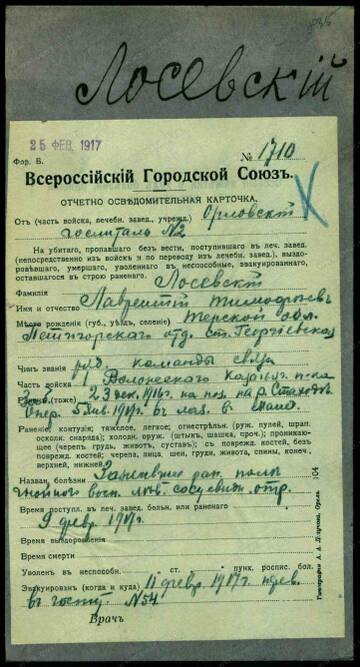 835
Лосевскій
25 ФЕВ. 1917
Фор. В.
№ 1710
Всероссійскій Городской Союзъ.
ОТЧЕТНО ОСВѢДОМИТЕЛЬНАЯ КАРТОЧКА.
Отъ (часть войска, лечебн. завед., учрежд.) Орловскій
госпиталь №2
На убитаго, пропавшаго безъ вести, поступившаго въ леч. завед.
(непосредственно изъ войскъ и по переводу изъ лечебн. завед.), выздо-
ровѣвшаго, умершаго, уволеннаго въ неспособные, эвакуированнаго,
оставшагося въ строю раненаго
Фамилія Лосевскій
Имя и отчество Лаврентій Тимофѣев
Мѣсто рожденія (губ., уѣздъ, селеніе) Терской обл.
Пятигорскаго отд. ст. Георгіевская
Чинъ званія ряд. команды связи
Часть войска Волгскаго Казач. п-ка
(тоже) 23 дек. 1916г. на поз. на р. Стоход
5 янв. 1917г. въ лаз.
Раненіе; контузія; тяжелое, легкое; огнестрѣльн. (руж. пулей, шрап.
осколк. снаряда); холодн. оруж. (штыкъ, шашка, проч.); проникаю-
щее (черепъ, грудь, животъ, суставъ); съ поврежд. костей, безъ
поврежд. костей; черепа, лица, шеи, груди, живота, спины, конеч.
верхней, нижней.
Назван. болѣзни
гнойного восп. отр.
Время поступл. въ леч. завед. больн. или раненаго
9 февр 1917г.
Время выздоровленія
Время смерти
Уволенъ въ неспособн. ст. пункт. роспис. бол.
Эвакуированъ (когда и куда) 11 февр. 1917г.
въ госп. №54
Врачъ